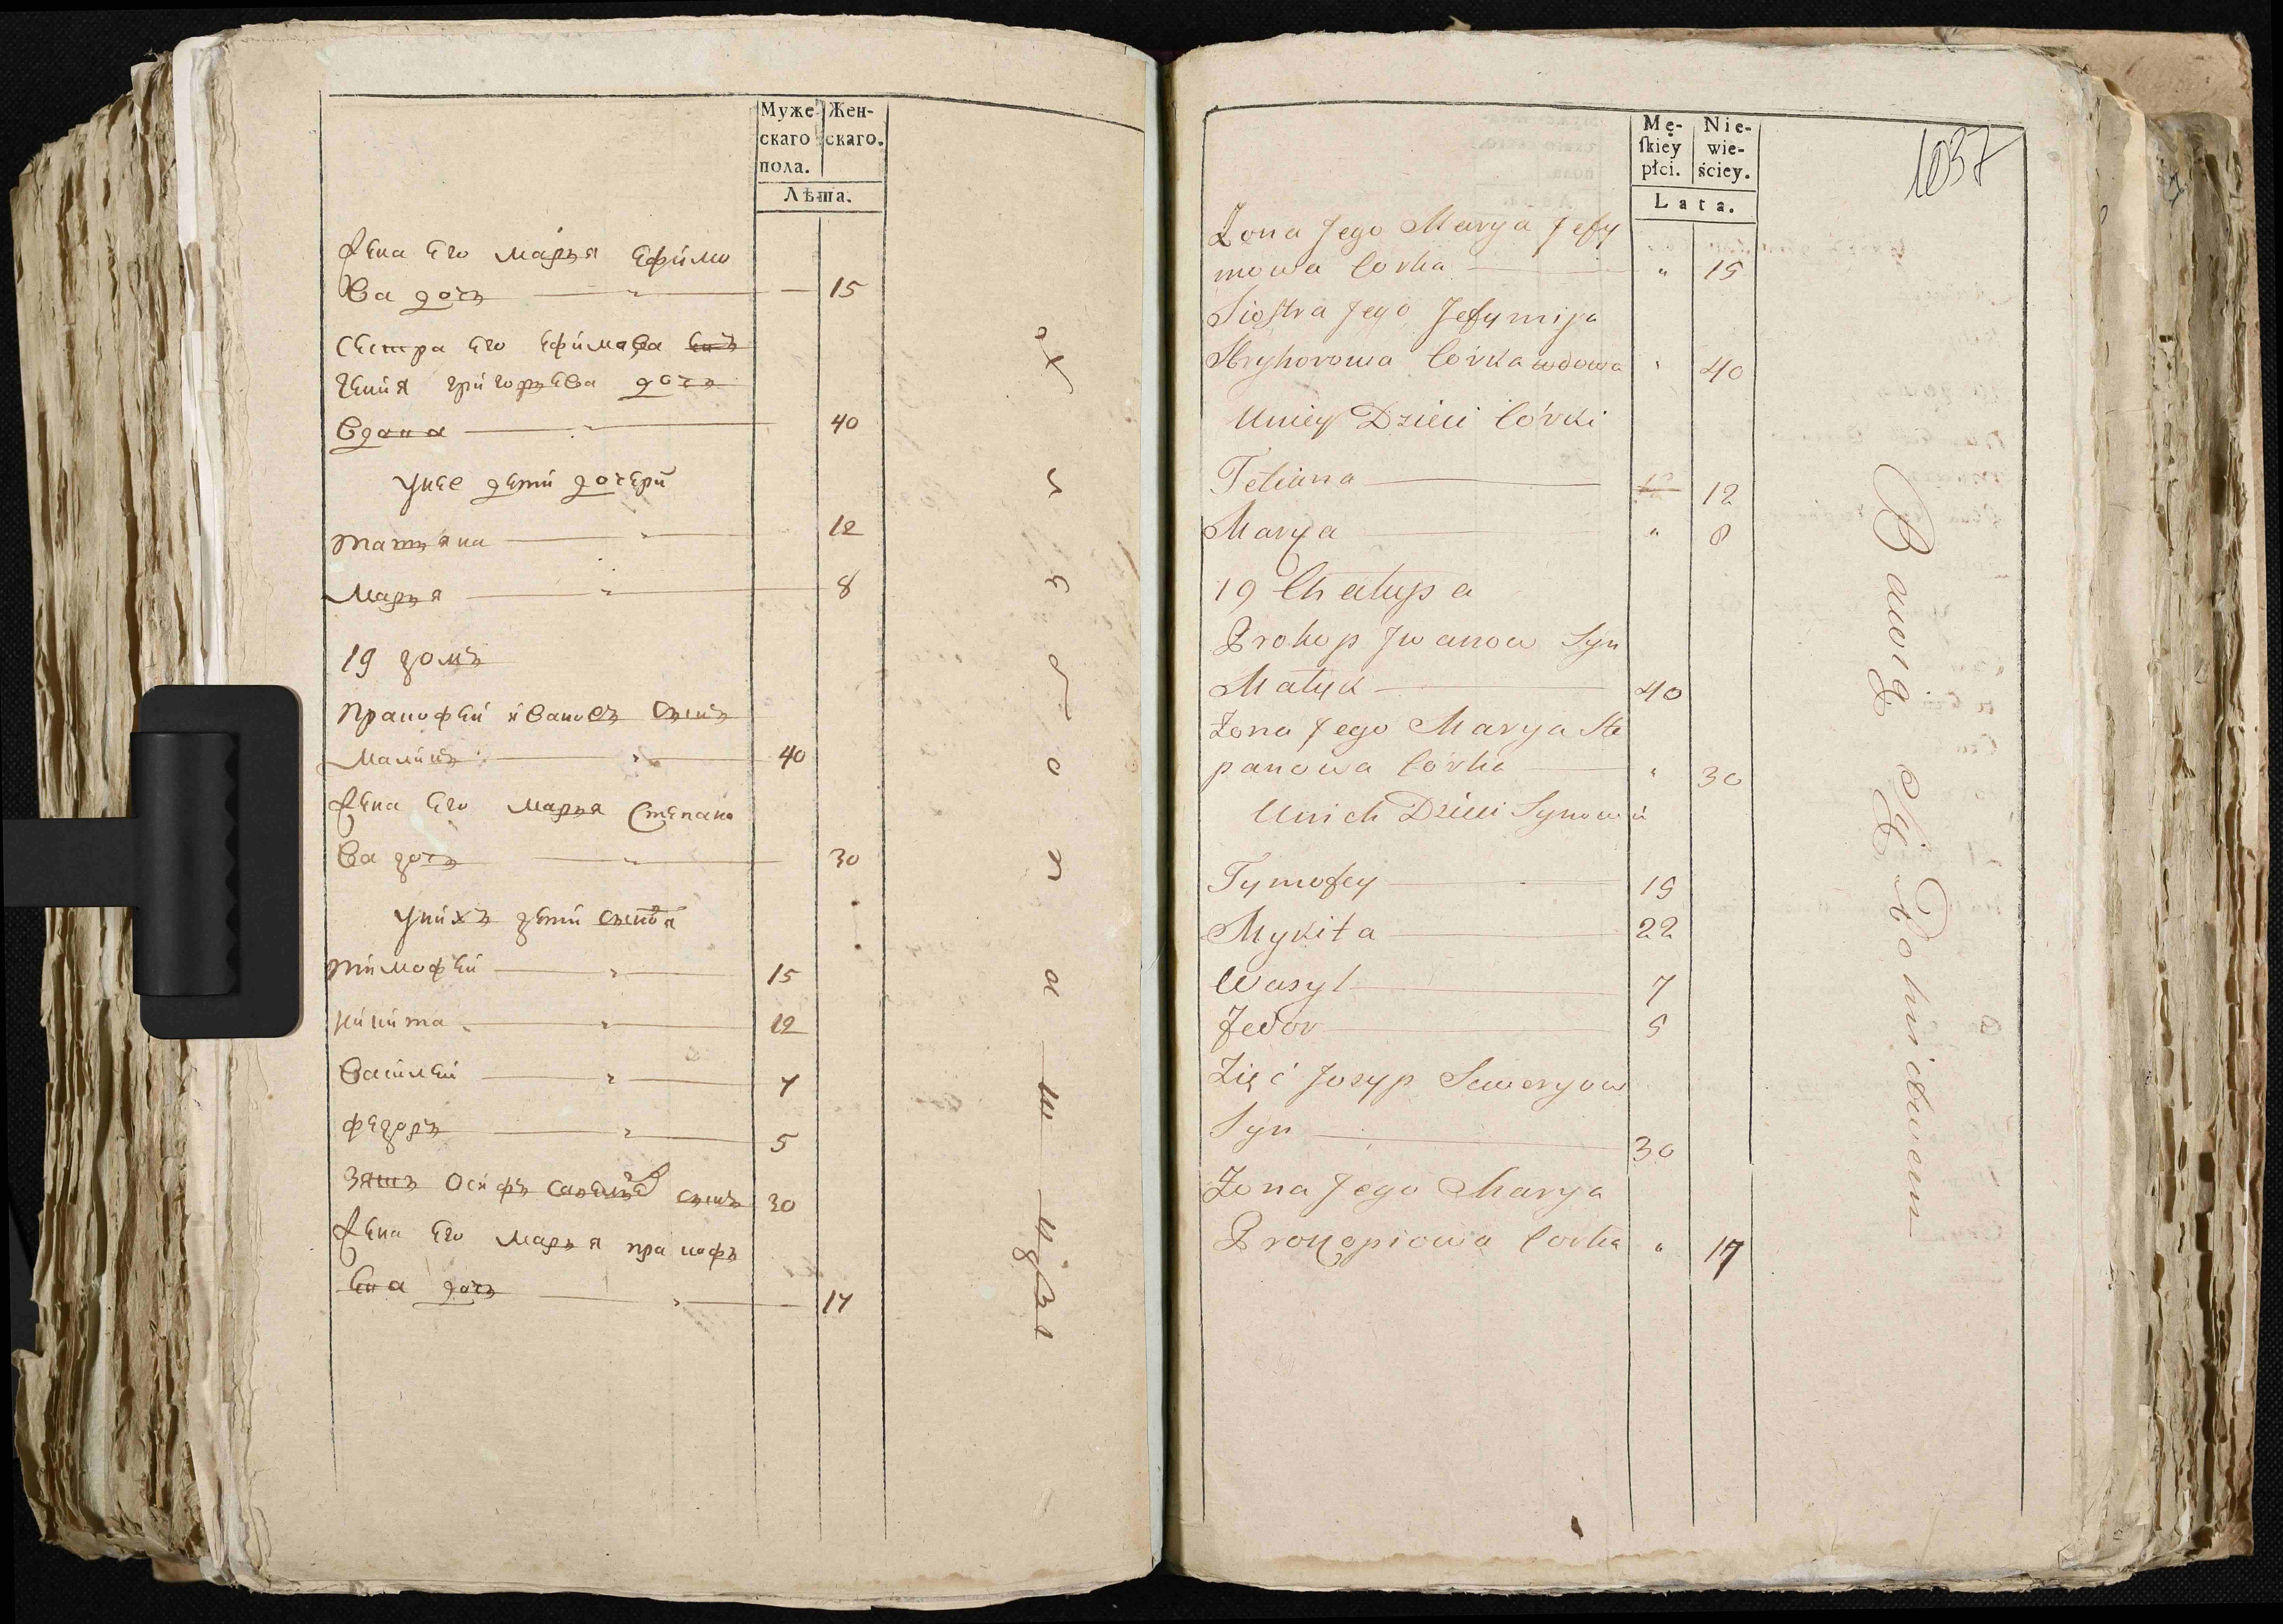 Муже-
скаго
пола.
Жен-
скаго.
Лѣта.
Жена его марья ефимо
ва дочь 15
Сестра его
григорьева дочь
вдова 40
унее дети дочери
татьяна 12
марья 8
19 домъ
Пракофей ивановъ сынъ
40
Жена его марья степано
ва дочь 30
унихъ дети сыновя
тимофей 15
никита 12
василей 7
федоръ 5
зять осифъ сынъ 30
Жена его марья пракофь
евна дочь 17
1037
Mę-
ſkiey
płci.
Nie-
wie-
ściey.
Lata.
Żona Jego Marya Jefy
mowa Corka " 15
Siostra Jego Jefymija
Hryhorowa Córka wdowa " 40
Uniey Dzieci Córki
Tetiana 12
Marya " 8
19 Chałupa
Prokop Jwanow Syn
Matyk 40
Żona Jego Marya Ste
panowa Córka " 30
Unich Dzieci Synowie
Tymofey 15
Mykita 22
Wasyl 7
Fedor 5
Zięć Josyp Seweryow
Syn 30
Żona Jego Marya
Prokopiowa Corka " 17
Bawią Się Rolnictwem